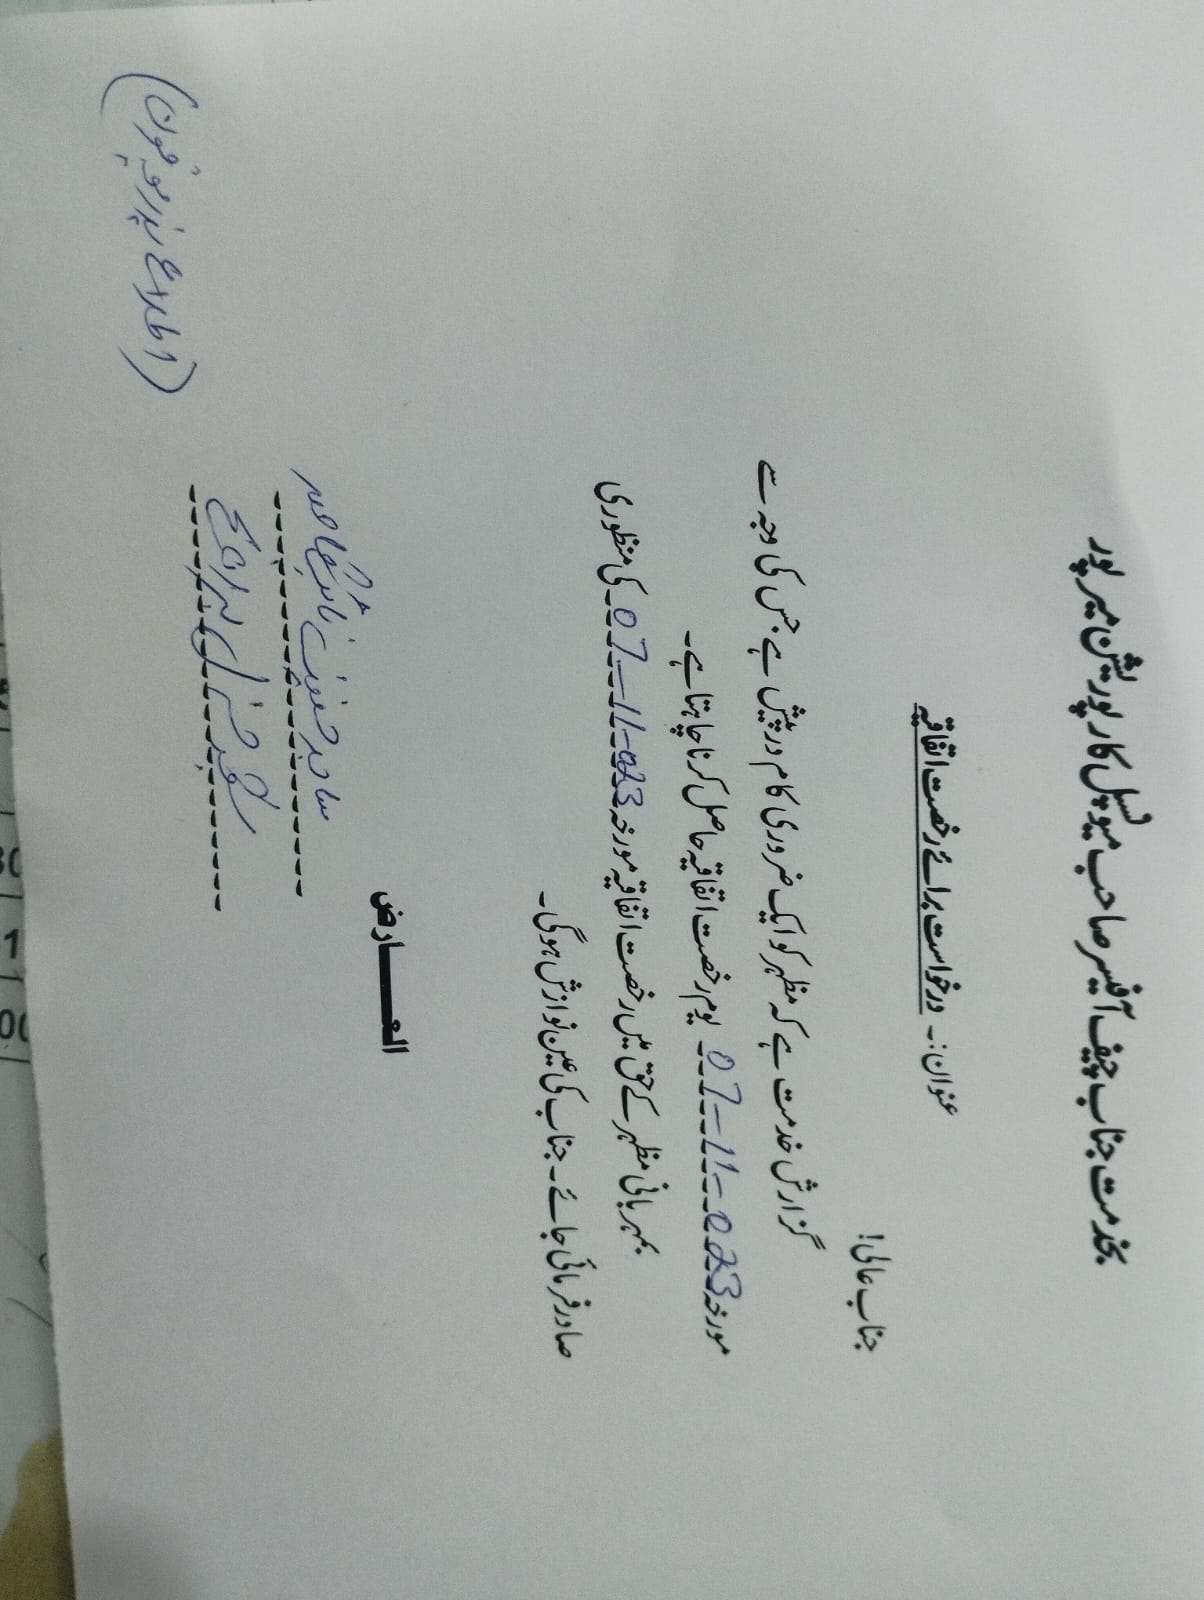 بخدمت جناب چیف آفیسر صاحب میونسپل کارپوریشن میرپور
عنوان:۔ درخواست برائے رخصت اتفاقیہ
جناب عالی!
گزارش خدمت ہے کہ مظہر کو ایک ضروری کام درپیش ہے جس کی وجہ سے
مورخہ 07-11-023 یوم رخصت اتفاقیہ حاصل کرنا چاہتا ہے۔
بمہربانی مظہر کے حق میں رخصت اتفاقیہ مورخہ 07-11-023 کی منظوری
صادر فرمائی جائے۔ جناب کی عین نوازش ہوگی۔
العـــــارض
ساجد حنیف نائب قاصد
(اطلاع بذریعہ فون)
00